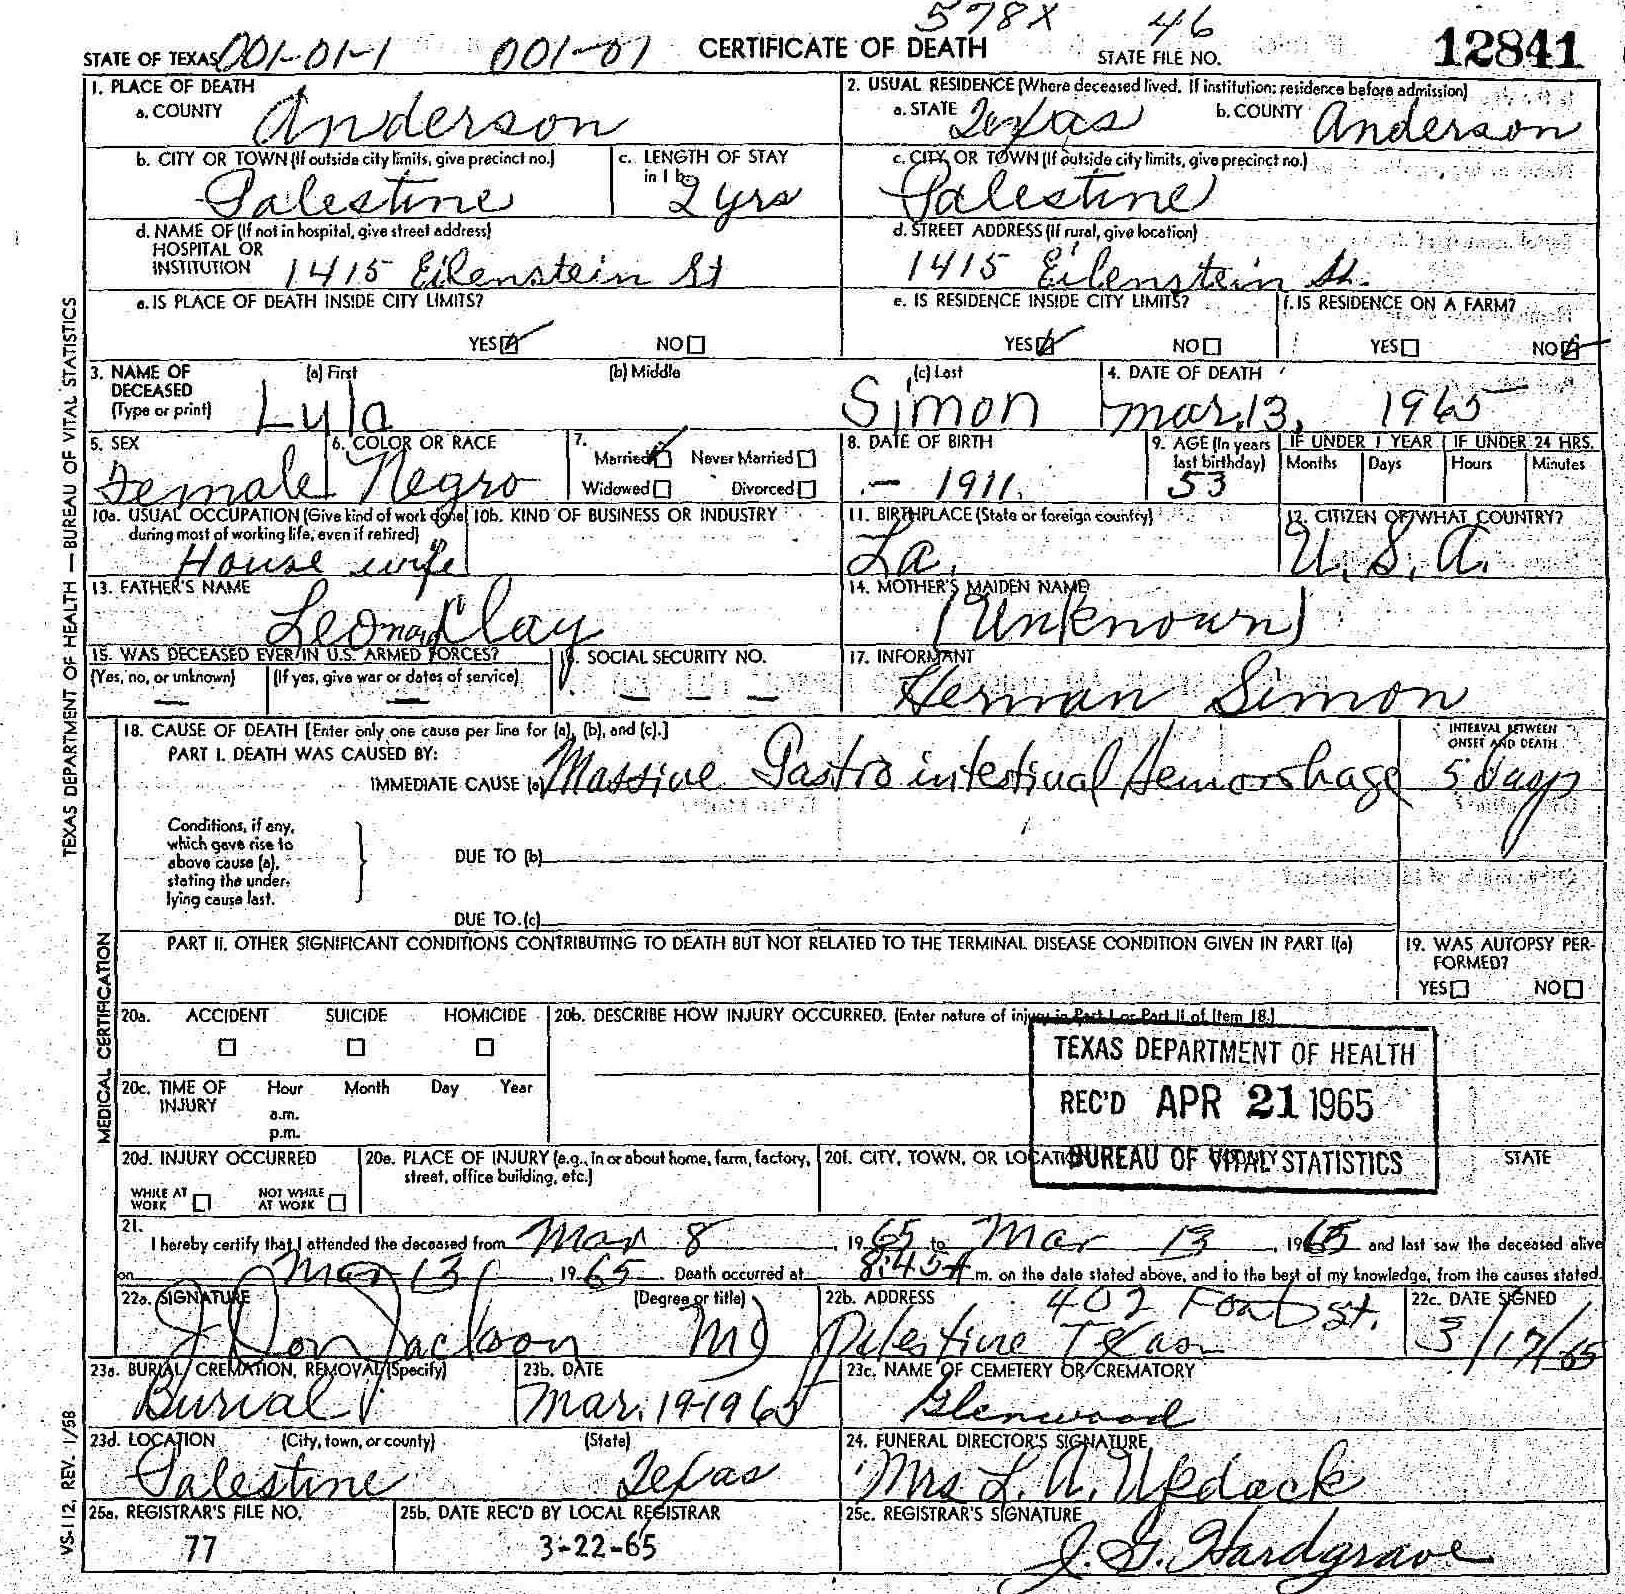 578X 46
STATE OF TEXAS 001-01-1 001-01 CERTIFICATE OF DEATH STATE FILE NO. 12841
1. PLACE OF DEATH
a. COUNTY Anderson
2. USUAL RESIDENCE (Where deceased lived. If institution: residence before admission)
a. STATE Texas b. COUNTY Anderson
b. CITY OR TOWN (If outside city limits, give precinct no.) Palestine
c. LENGTH OF STAY in 1 b. 2 yrs
c. CITY OR TOWN (If outside city limits, give precinct no.) Palestine
d. NAME OF (If not in hospital, give street address)
HOSPITAL OR
INSTITUTION 1415 Eilenstein St
d. STREET ADDRESS (If rural, give location)
1415 Eilenstein St.
e. IS PLACE OF DEATH INSIDE CITY LIMITS?
YES NO
e. IS RESIDENCE INSIDE CITY LIMITS?
YES NO
f. IS RESIDENCE ON A FARM?
YES NO
3. NAME OF DECEASED (Type or print)
(a) First (b) Middle (c) Last
Lyla Simon
4. DATE OF DEATH
Mar. 13, 1965
5. SEX
Female
6. COLOR OR RACE
Negro
7. Married Never Married
Widowed Divorced
8. DATE OF BIRTH
- 1911
9. AGE (In years last birthday)
53
IF UNDER 1 YEAR IF UNDER 24 HRS.
Months Days Hours Minutes
10a. USUAL OCCUPATION (Give kind of work done during most of working life, even if retired)
House wife
10b. KIND OF BUSINESS OR INDUSTRY
11. BIRTHPLACE (State or foreign country)
La.
12. CITIZEN OF WHAT COUNTRY?
U. S. A.
13. FATHER'S NAME
Leonard Clay
14. MOTHER'S MAIDEN NAME
(Unknown)
15. WAS DECEASED EVER IN U.S. ARMED FORCES?
(Yes, no, or unknown) (If yes, give war or dates of service)
— —
16. SOCIAL SECURITY NO.
— — —
17. INFORMANT
Herman Simon
18. CAUSE OF DEATH [Enter only one cause per line for (a), (b), and (c).]
PART I. DEATH WAS CAUSED BY:
IMMEDIATE CAUSE (a) Massive Gastro intestinal Hemorrhage
INTERVAL BETWEEN ONSET AND DEATH
5 days
Conditions, if any,
which gave rise to
above cause (a),
stating the under-
lying cause last.
DUE TO (b)
DUE TO (c)
PART II. OTHER SIGNIFICANT CONDITIONS CONTRIBUTING TO DEATH BUT NOT RELATED TO THE TERMINAL DISEASE CONDITION GIVEN IN PART I(a)
19. WAS AUTOPSY PER-
FORMED?
YES NO
20a. ACCIDENT SUICIDE HOMICIDE
20b. DESCRIBE HOW INJURY OCCURRED. (Enter nature of injury in Part I or Part II of Item 18.)
20c. TIME OF INJURY Hour Month Day Year
a.m.
p.m.
TEXAS DEPARTMENT OF HEALTH
REC'D APR 21 1965
BUREAU OF VITAL STATISTICS
20d. INJURY OCCURRED
WHILE AT WORK NOT WHILE AT WORK
20e. PLACE OF INJURY (e.g., in or about home, farm, factory, street, office building, etc.)
20f. CITY, TOWN, OR LOCATION COUNTY STATE
21.
I hereby certify that I attended the deceased from Mar 8, 1965 to Mar 13, 1965 and last saw the deceased alive
on Mar 13, 1965. Death occurred at 8:45 A m. on the date stated above, and to the best of my knowledge, from the causes stated.
22a. SIGNATURE (Degree or title)
J Don Jackson MD
22b. ADDRESS 402 St.
Palestine Texas
22c. DATE SIGNED
3/17/65
23a. BURIAL, CREMATION, REMOVAL (Specify)
Burial
23b. DATE
Mar. 19-1965
23c. NAME OF CEMETERY OR CREMATORY
Glenwood
23d. LOCATION (City, town, or county) (State)
Palestine Texas
24. FUNERAL DIRECTOR'S SIGNATURE
Mrs L. A.
25a. REGISTRAR'S FILE NO.
77
25b. DATE REC'D BY LOCAL REGISTRAR
3-22-65
25c. REGISTRAR'S SIGNATURE
J. G. Hardgrave
TEXAS DEPARTMENT OF HEALTH — BUREAU OF VITAL STATISTICS
MEDICAL CERTIFICATION
VS-112, REV. 1/58